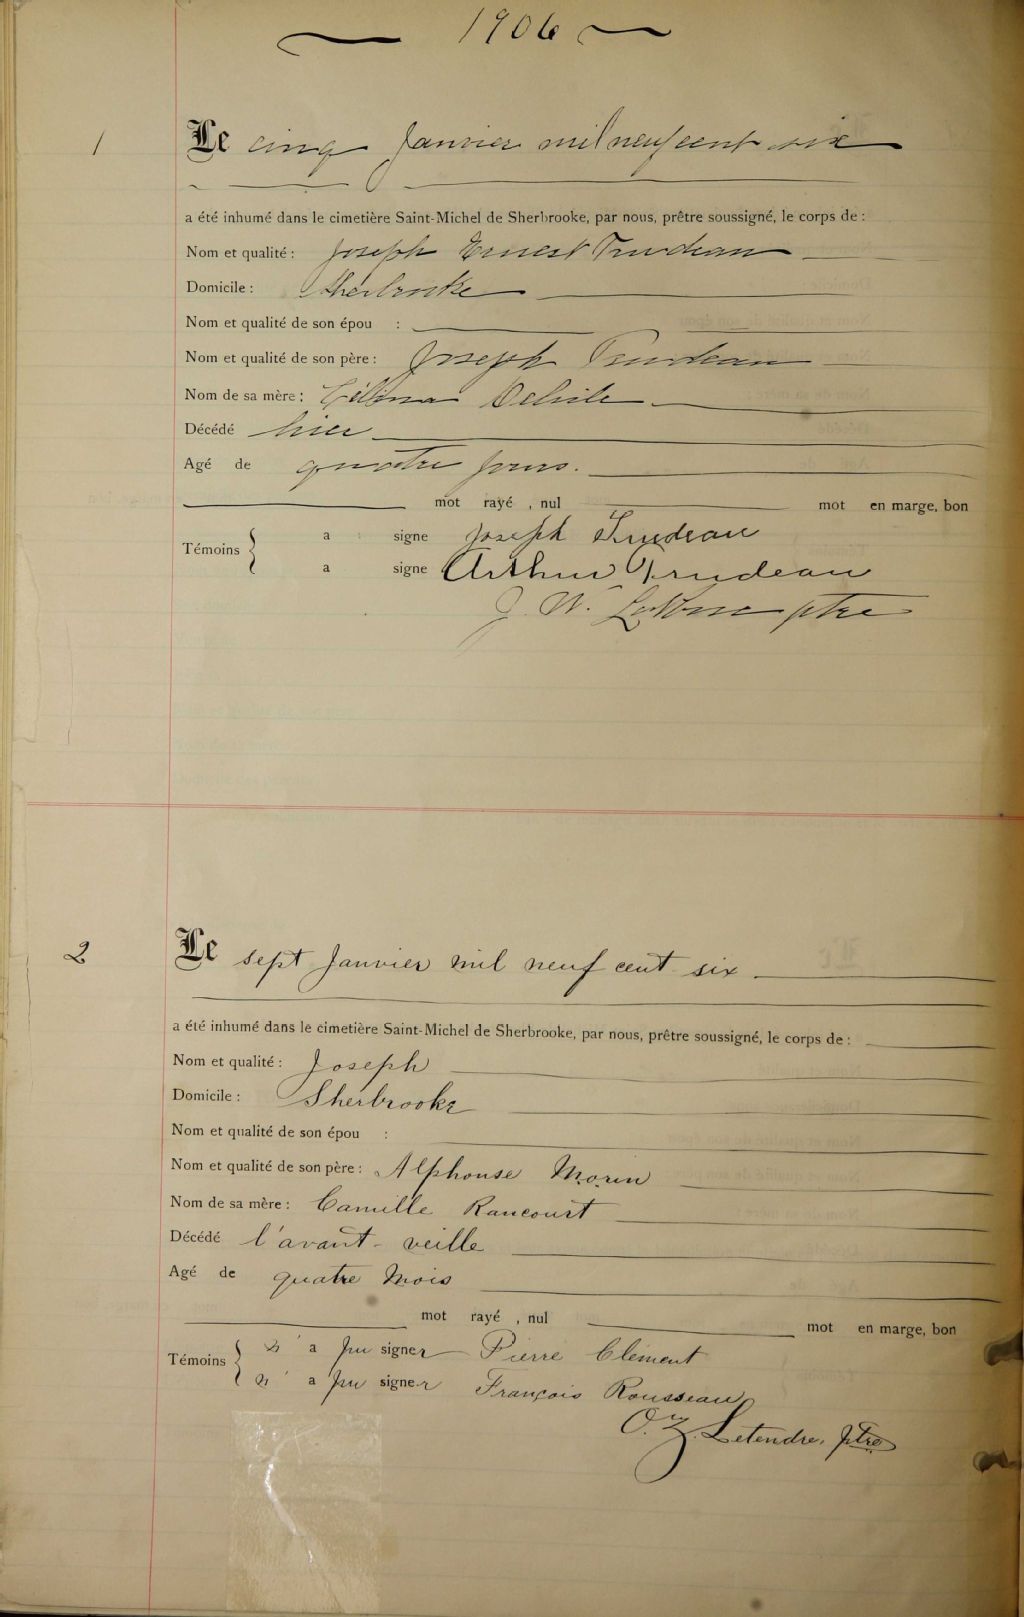 1906
1
Le cinq Janvier mil neuf cent six
a été inhumé dans le cimetière Saint-Michel de Sherbrooke, par nous, prêtre soussigné, le corps de :
Nom et qualité : Joseph Ernest Trudeau
Domicile : Sherbrooke
Nom et qualité de son épou :
Nom et qualité de son père : Joseph Trudeau
Nom de sa mère : Célina Delisle
Décédé hier
Agé de quatre jours.
mot rayé , nul mot en marge, bon
Témoins a signe Joseph Trudeau
a signe Arthur Trudeau
J. W. ptre
2
Le sept Janvier mil neuf cent six
a été inhumé dans le cimetière Saint-Michel de Sherbrooke, par nous, prêtre soussigné, le corps de :
Nom et qualité : Joseph
Domicile : Sherbrooke
Nom et qualité de son épou :
Nom et qualité de son père : Alphonse Morin
Nom de sa mère : Camille Rancourt
Décédé l'avant-veille
Agé de quatre mois
mot rayé , nul mot en marge, bon
Témoins n' a pu signer Pierre Clément
n' a pu signer François Rousseau
O. Z. Letendre, ptre